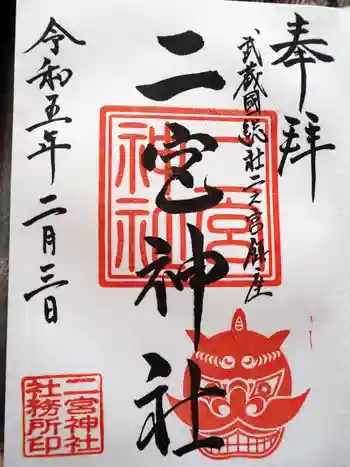 奉拝
武蔵國総社二之宮鎮座
二宮神社
二宮神社
令和五年二月三日
二宮神社
社務所印